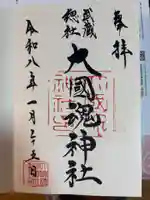 奉拝
武蔵
総社
大國魂神社
令和八年一月二十五日